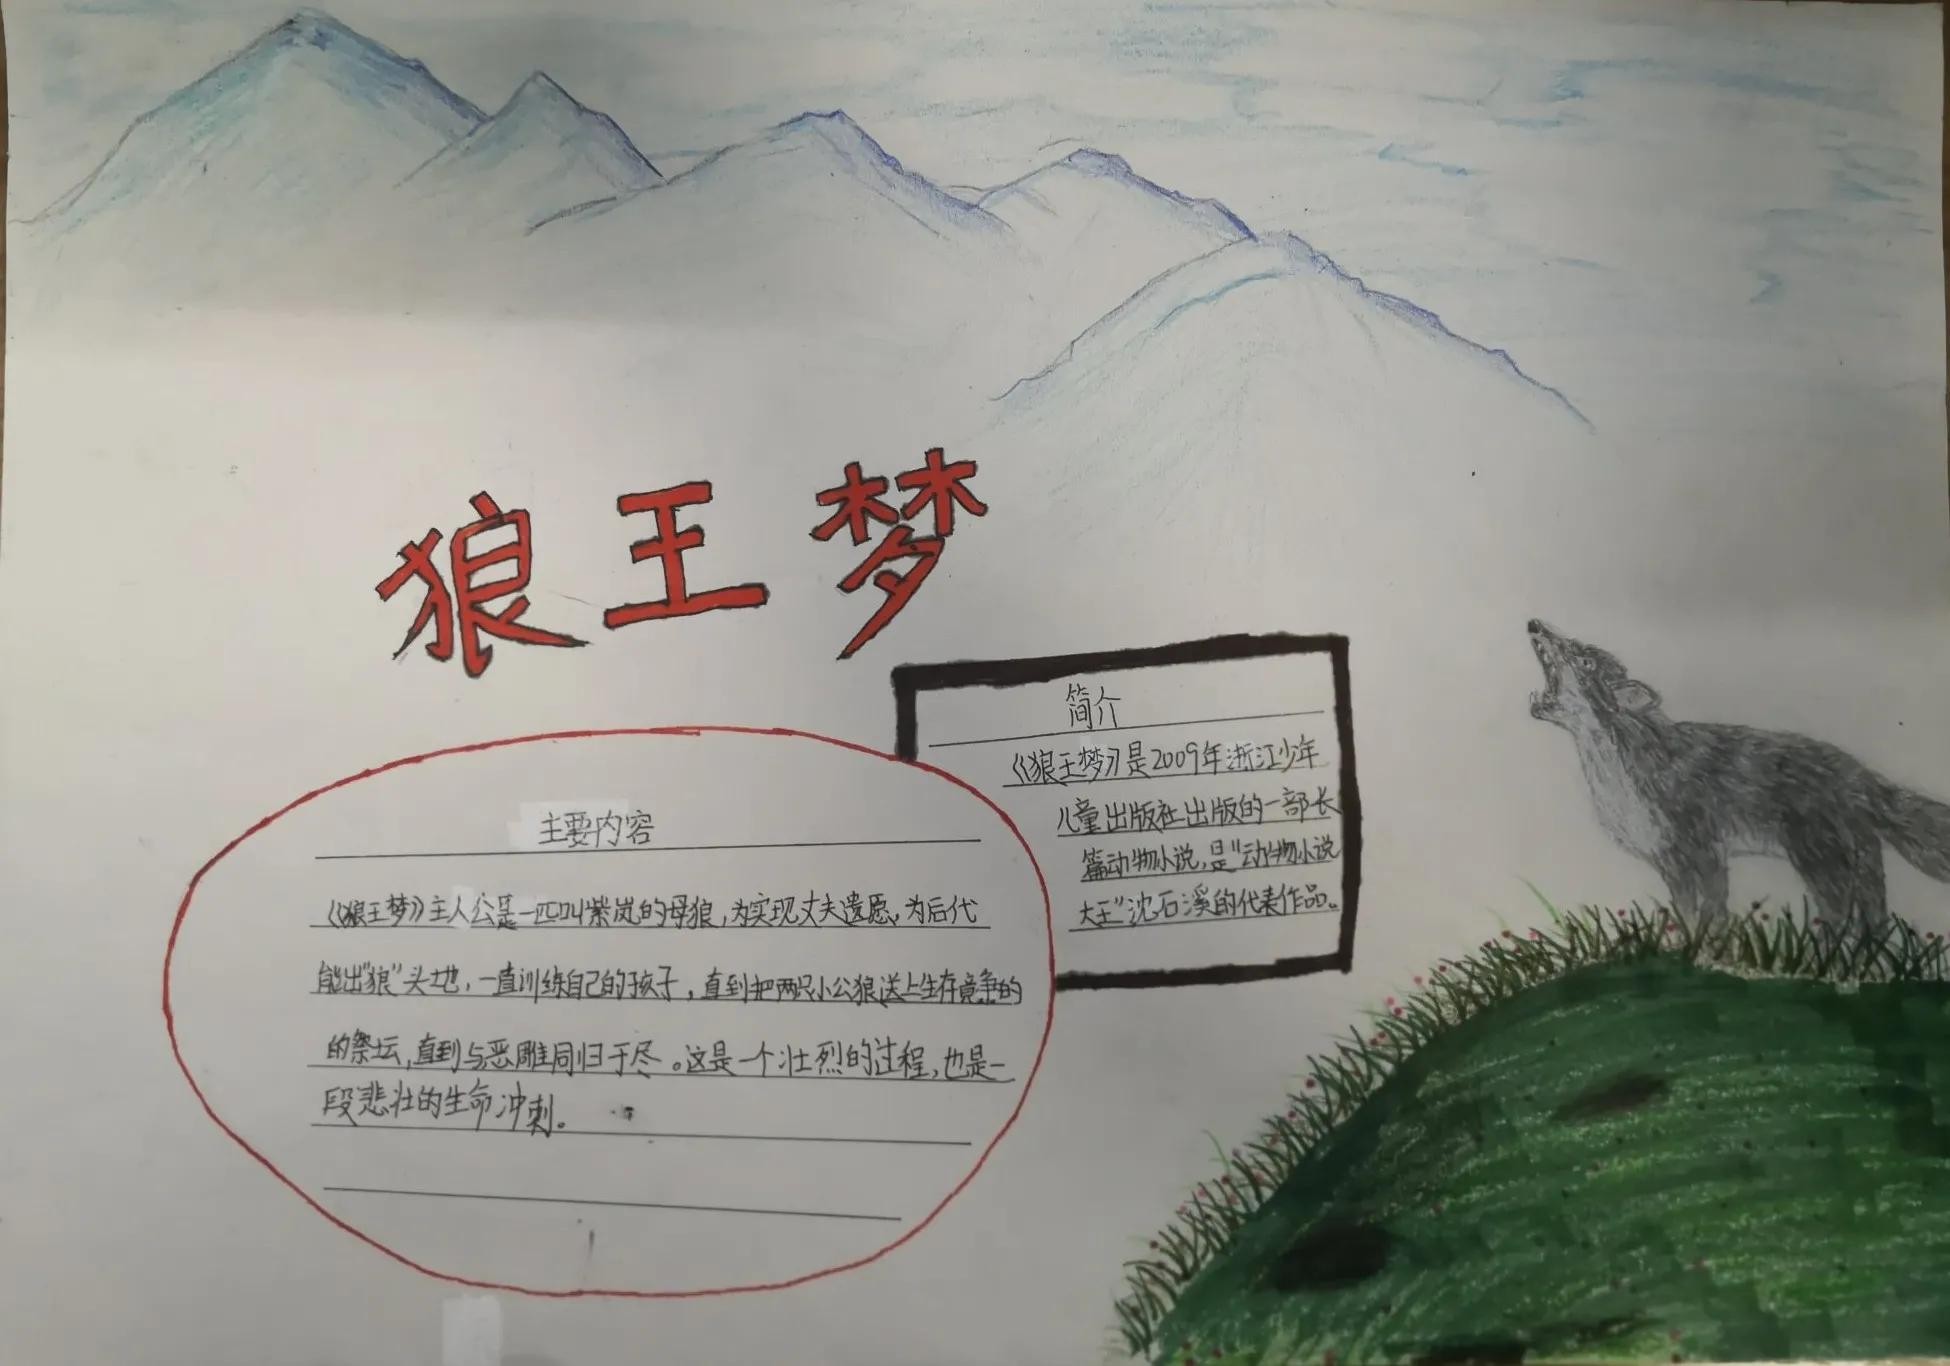 狼王梦
简介
《狼王梦》是2009年浙江少年
儿童出版社出版的一部长
篇动物小说,是"动物小说
大王"沈石溪的代表作品。
主要内容
《狼王梦》主人公是一匹叫紫岚的母狼,为实现丈夫遗愿,为后代
能出"狼"头地,一直训练自己的孩子,直到把两只小公狼送上生存竞争的
的祭坛,直到与恶雕同归于尽。这是一个壮烈的过程,也是一
段悲壮的生命冲刺。